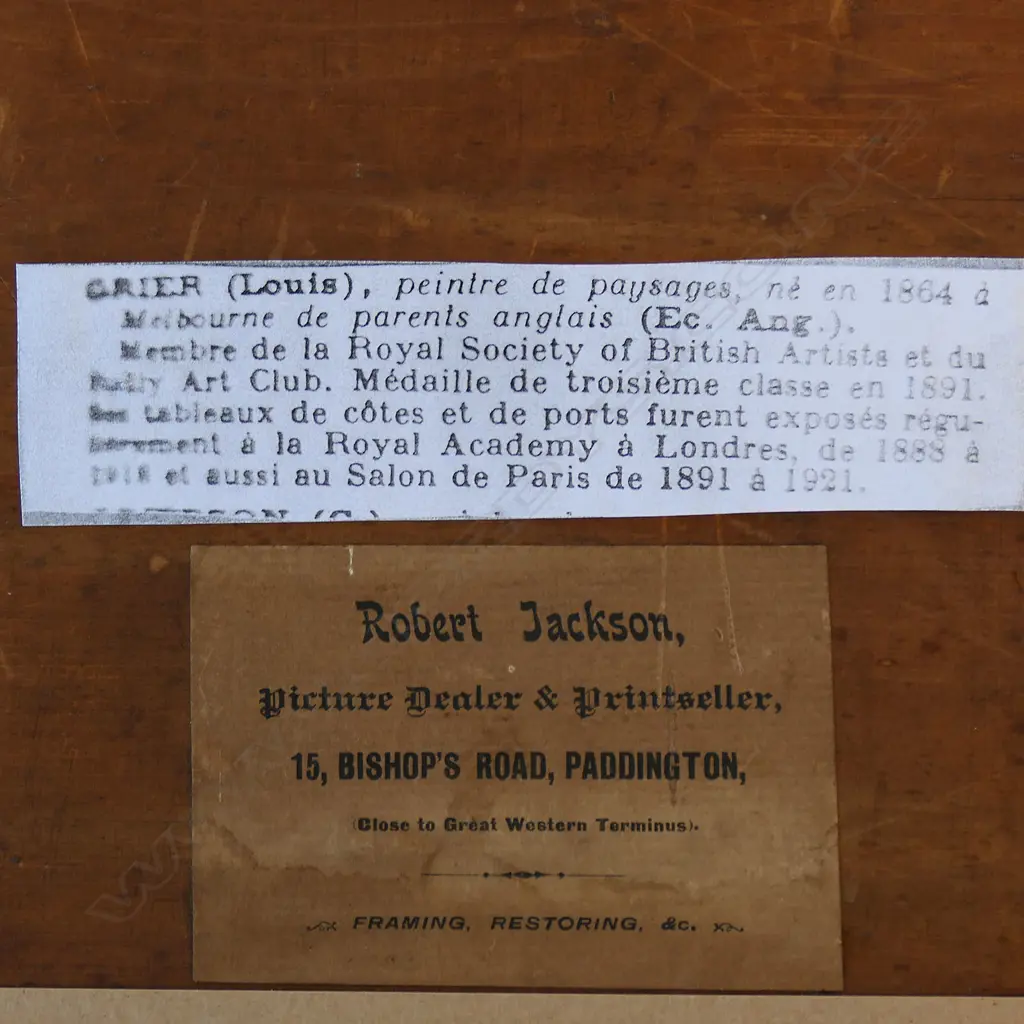 GRIER (Louis), peintre de paysages, né en 1864 à
Melbourne de parents anglais (Ec. Ang.).
Membre de la Royal Society of British Artists et du
Art Club. Médaille de troisième classe en 1891.
Ses tableaux de côtes et de ports furent exposés régu-
à la Royal Academy à Londres, de 1888 à
et aussi au Salon de Paris de 1891 à 1921.
Robert Jackson,
Picture Dealer & Printseller,
15, BISHOP'S ROAD, PADDINGTON,
(Close to Great Western Terminus).
FRAMING, RESTORING, &c.